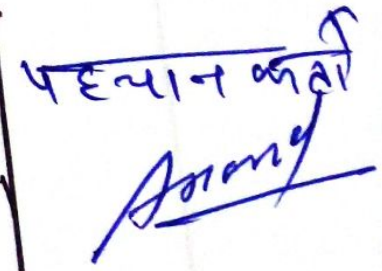 पहचान कर्ता
Anand